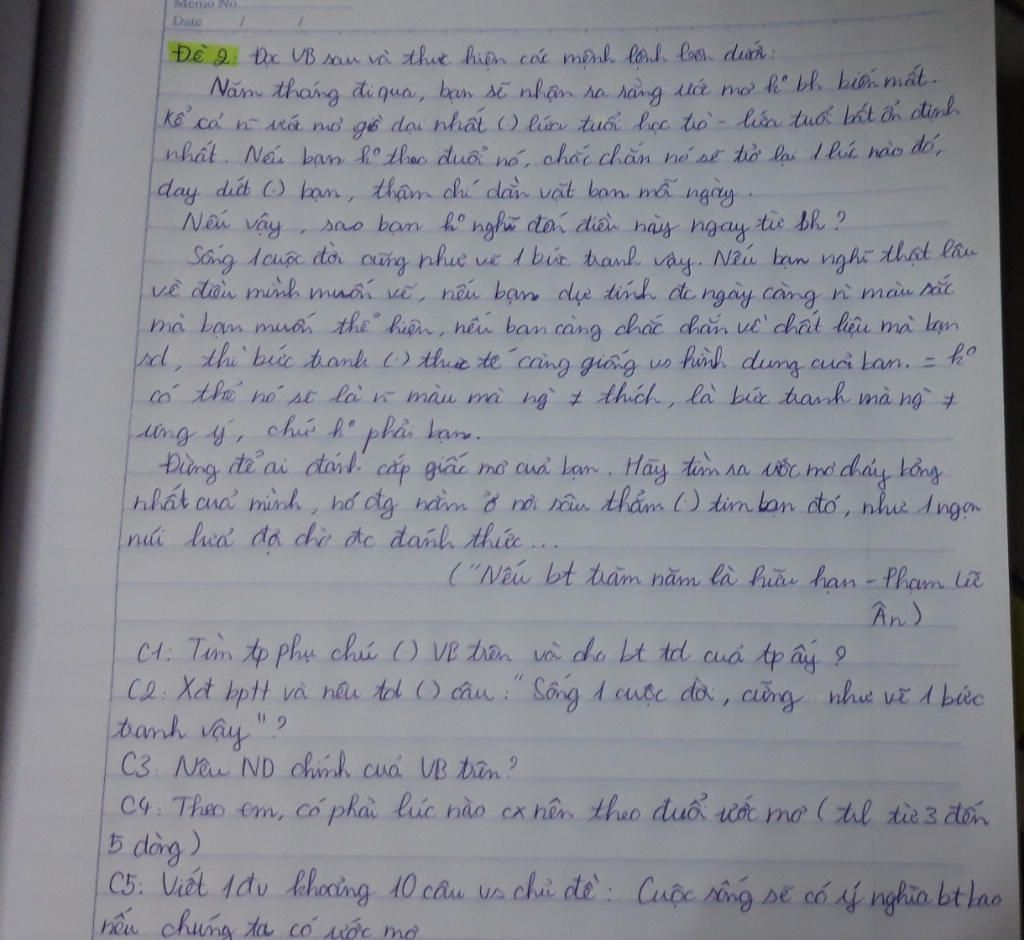 Memo No.
Date / /
Đề 2: Đọc VB sau và thực hiện các mệnh lệnh bên dưới:
Năm tháng đi qua, bạn sẽ nhận ra rằng ước mơ k° bh biến mất.
Kể cả n~ ước mơ dại nhất (.) lứa tuổi học trò - lứa tuổi bất ổn định
nhất. Nếu bạn k° theo đuổi nó, chắc chắn nó sẽ trở lại 1 lúc nào đó,
day dứt (.) bạn, thậm chí dằn vặt bạn mỗi ngày.
Nếu vậy, sao bạn k° nghĩ đến điều này ngay từ bh?
Sống 1 cuộc đời cũng như vẽ 1 bức tranh vậy. Nếu bạn nghĩ thật lâu
về điều mình muốn vẽ, nếu bạn dự tính đc ngày càng n` màu sắc
mà bạn muốn thể hiện, nếu bạn càng chắc chắn về chất liệu mà bạn
sd, thì bức tranh (.) thực tế càng giống vs hình dung của bạn. = k°
có thể nó sẽ là n~ màu mà ng` ≠ thích, là bức tranh mà ng` ≠
ưng ý, chứ k° phải bạn.
Đừng để ai đánh cắp giấc mơ của bạn. Hãy tìm ra ước mơ cháy bỏng
nhất của mình, nó đg nằm ở nơi sâu thẳm (.) tim bạn đó, như 1 ngọn
núi lửa đợi chờ đc đánh thức...
("Nếu bt trăm năm là hữu hạn - Phạm Lữ
Ân)
C1: Tìm tp phụ chú (.) VB trên và cho bt td của tp ấy?
C2: Xđ bptt và nêu td (.) câu: "Sống 1 cuộc đời, cũng như vẽ 1 bức
tranh vậy"?
C3: Nêu ND chính của VB trên?
C4: Theo em, có phải lúc nào cx nên theo đuổi ước mơ (tl từ 3 đến
5 dòng)
C5: Viết 1 đv khoảng 10 câu vs chủ đề: Cuộc sống sẽ có ý nghĩa bt bao
nếu chúng ta có ước mơ